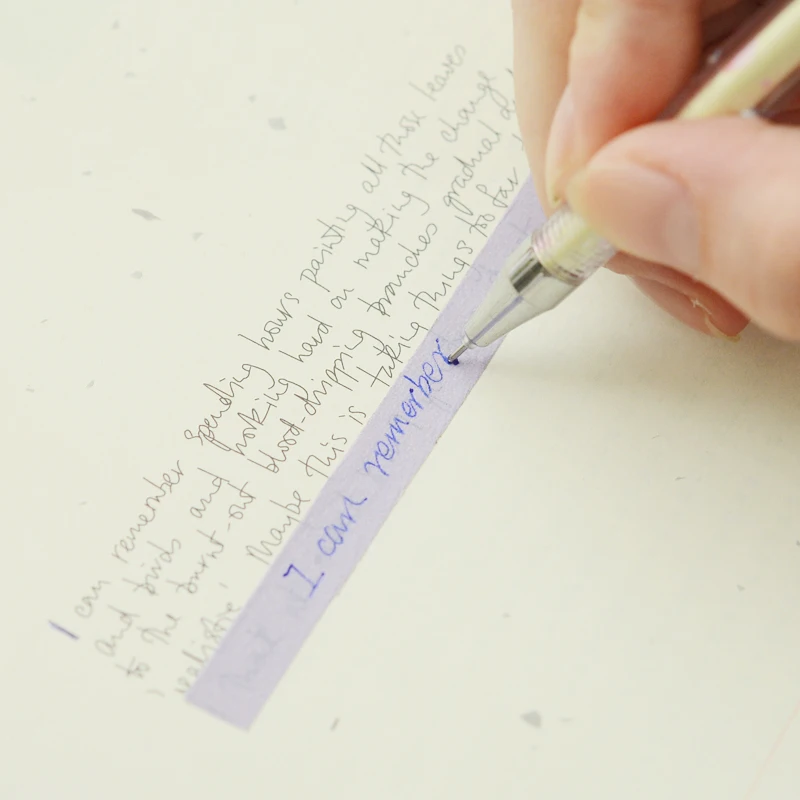 I can remember spending hours painting all those leaves
and birds and working hard on making the change
to the burnt-out blood-dripping branches gradual
'realistic'. Maybe this is taking things too far
I can remember